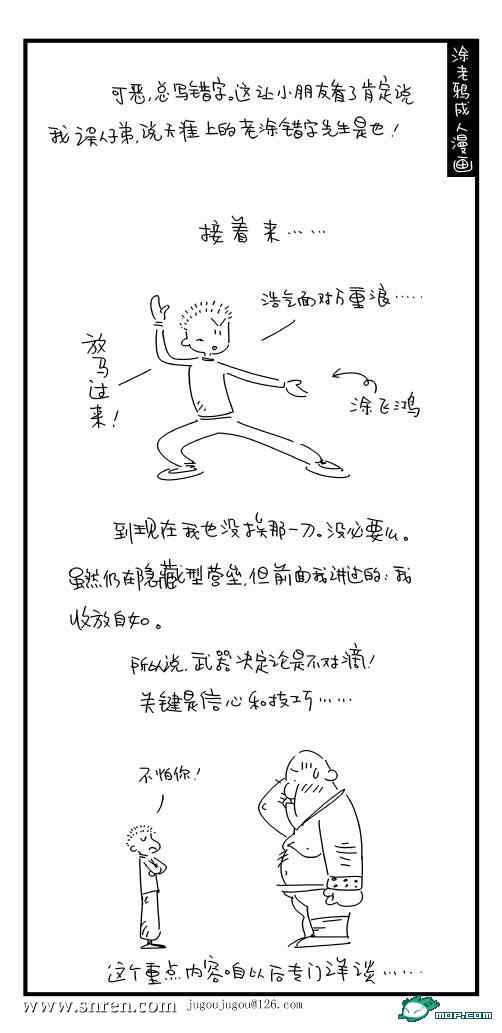 涂老鸦成人漫画
可恶,总写错字。这让小朋友看了肯定说
我误人子弟,说天涯上的老涂错字先生是也!
接着来……
浩气面对万重浪……
放马过来!
涂飞鸿
到现在我也没挨那一刀。没必要么。
虽然仍在隐藏型营垒,但前面我讲过的:我
收放自如。
所以说,武器决定论是不对滴!
关键是信心和技巧……
不怕你!
这个重点内容咱以后专门详谈……
www.snren.com jugoujugou@126.com
mop.com